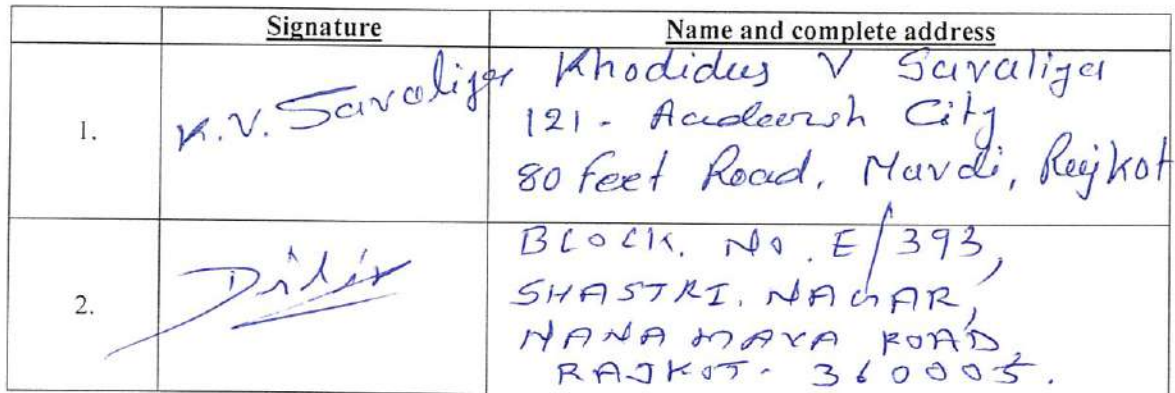 Signature Name and complete address
1. K.V. Savaliya Khodidas V Savaliya
121- Aadarsh City
80 feet Road, Mavdi, Rajkot
2. BLOCK. NO. E/393,
SHASTRI. NAGAR,
NANA MAVA ROAD,
RAJKOT- 360005.